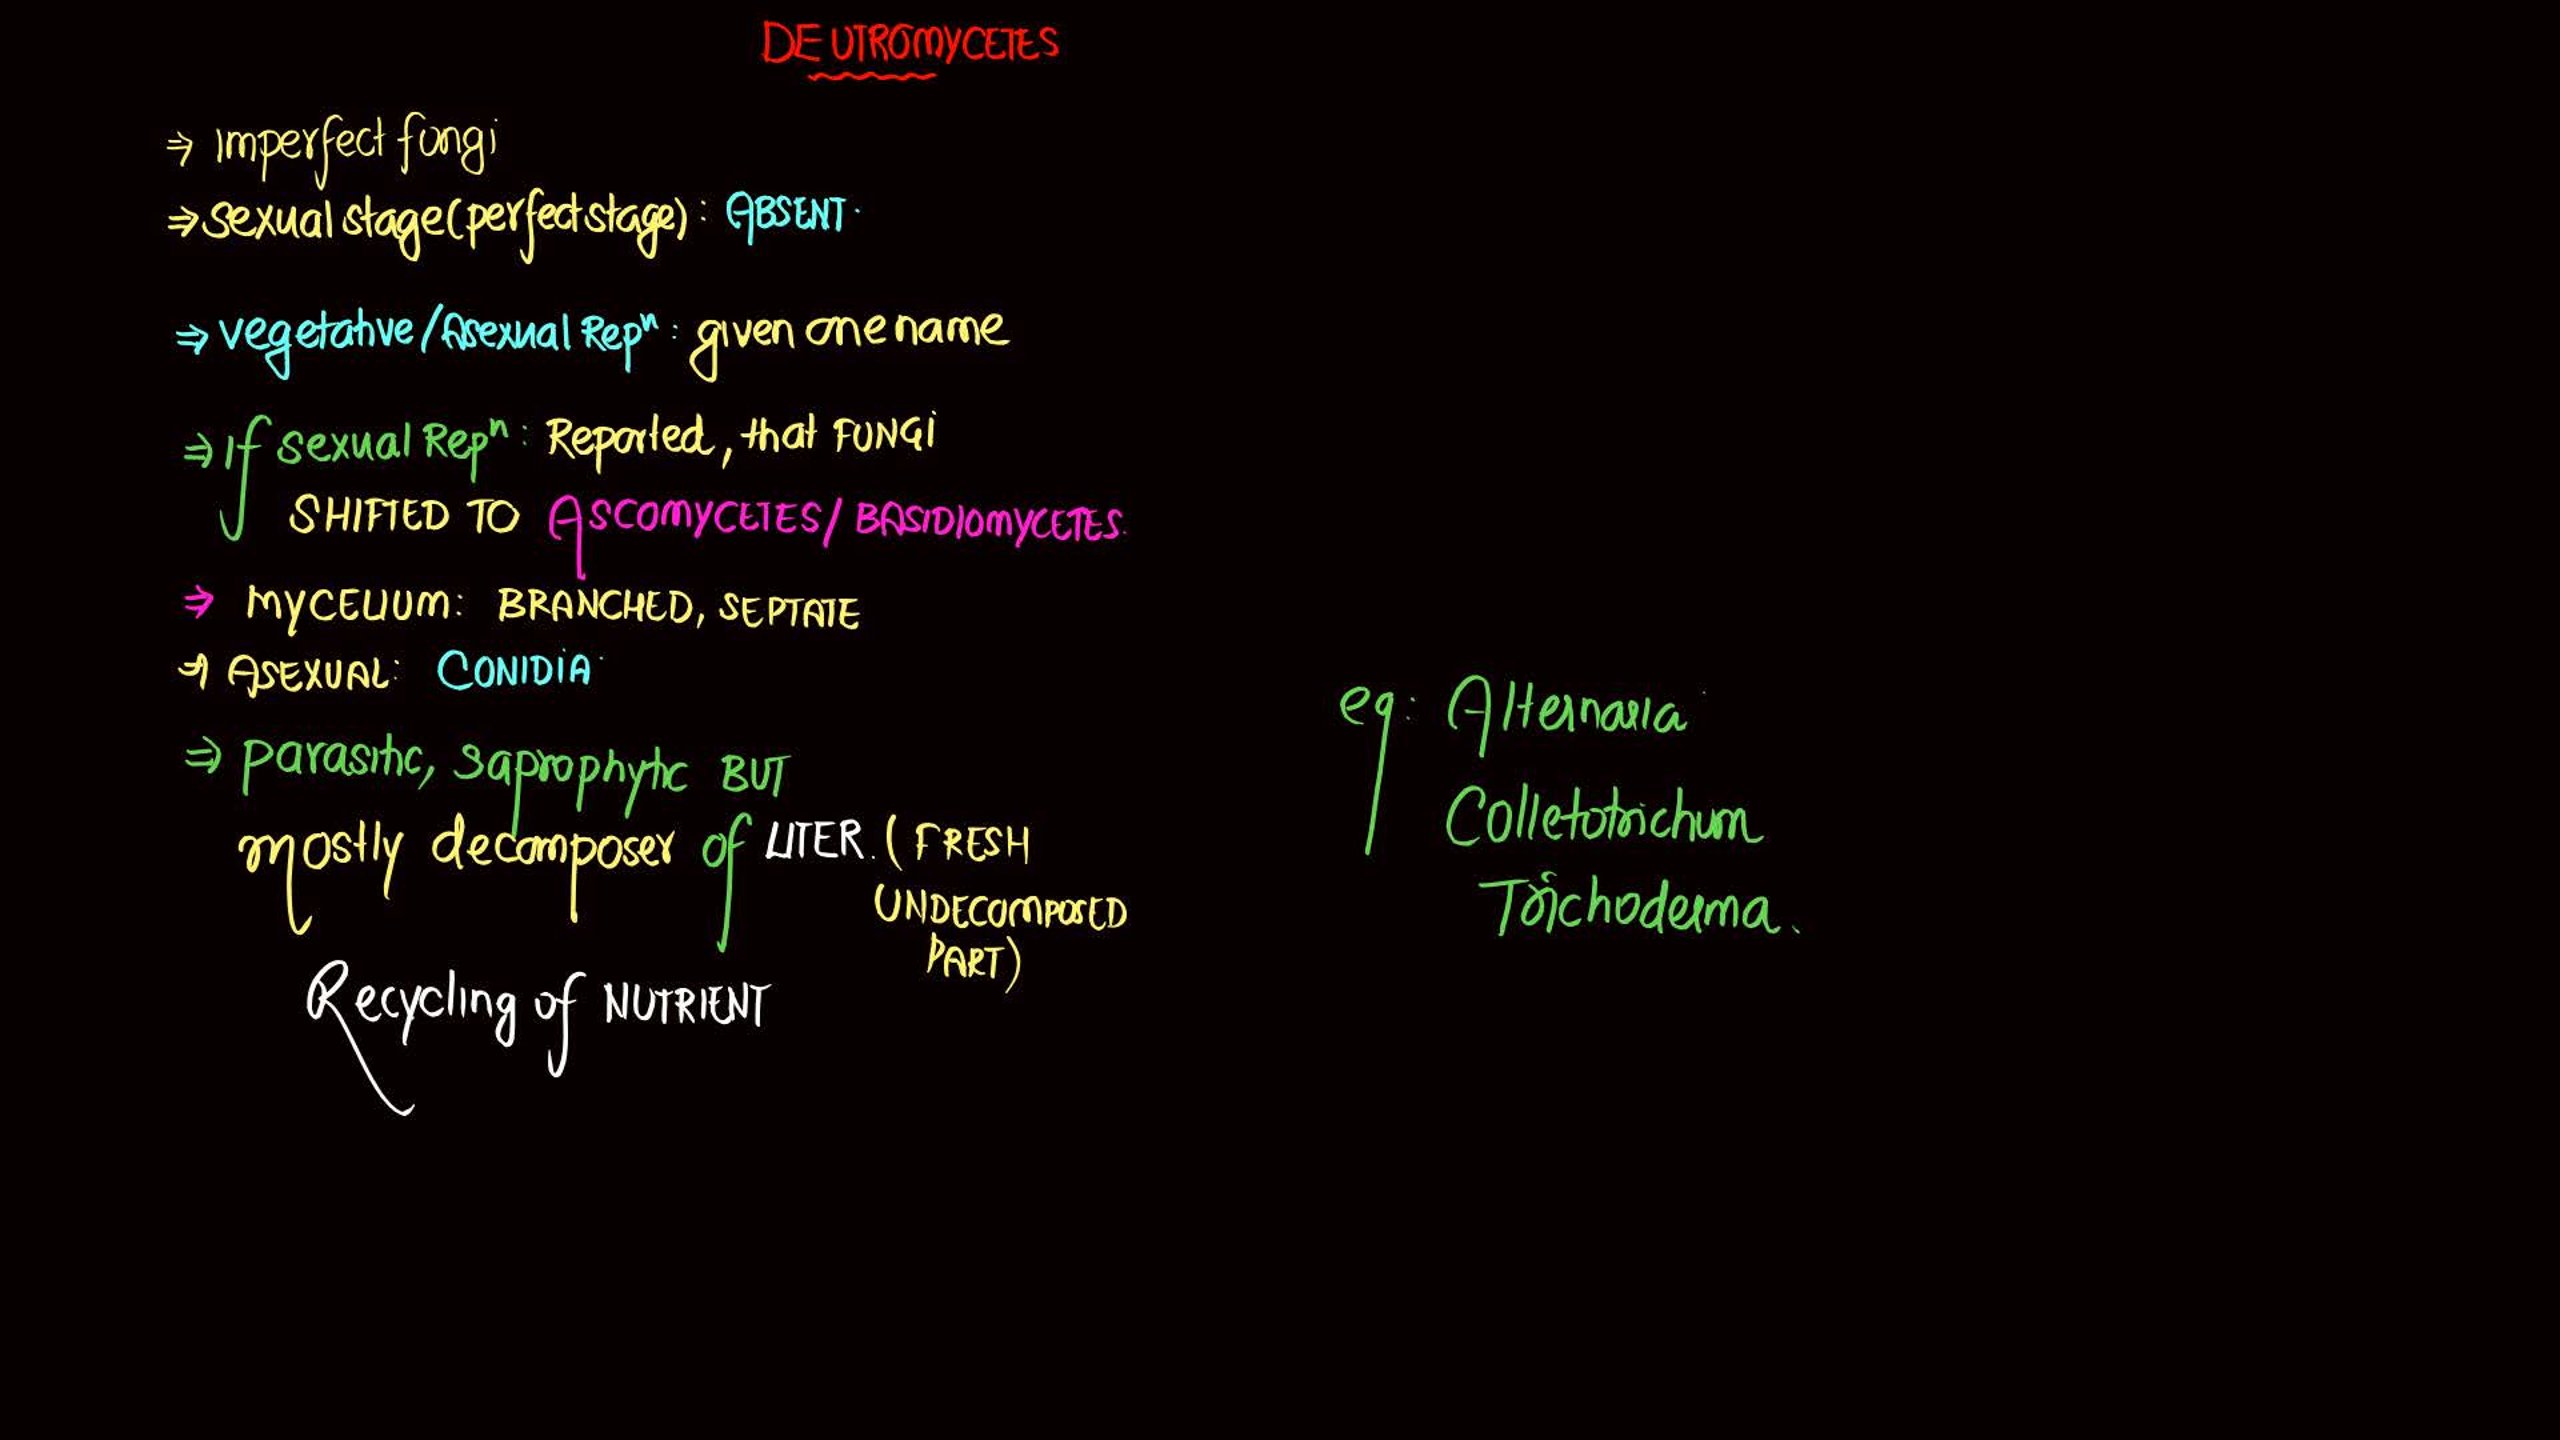 DEUTROMYCETES
⇒ Imperfect fungi
⇒ Sexual stage (perfect stage) : ABSENT.
⇒ Vegetative/Asexual Repⁿ : given one name
⇒ If Sexual Repⁿ : Reported, that FUNGi
SHIFTED TO ASCOMYCETES/ BASIDIOMYCETES.
⇒ MYCELIUM: BRANCHED, SEPTATE
⇒ ASEXUAL: CONIDIA
⇒ parasitic, saprophytic BUT
mostly decomposer of LITER. ( FRESH
UNDECOMPOSED
PART)
Recycling of NUTRIENT
eg: Alternaria
Colletotrichum
Trichoderma.